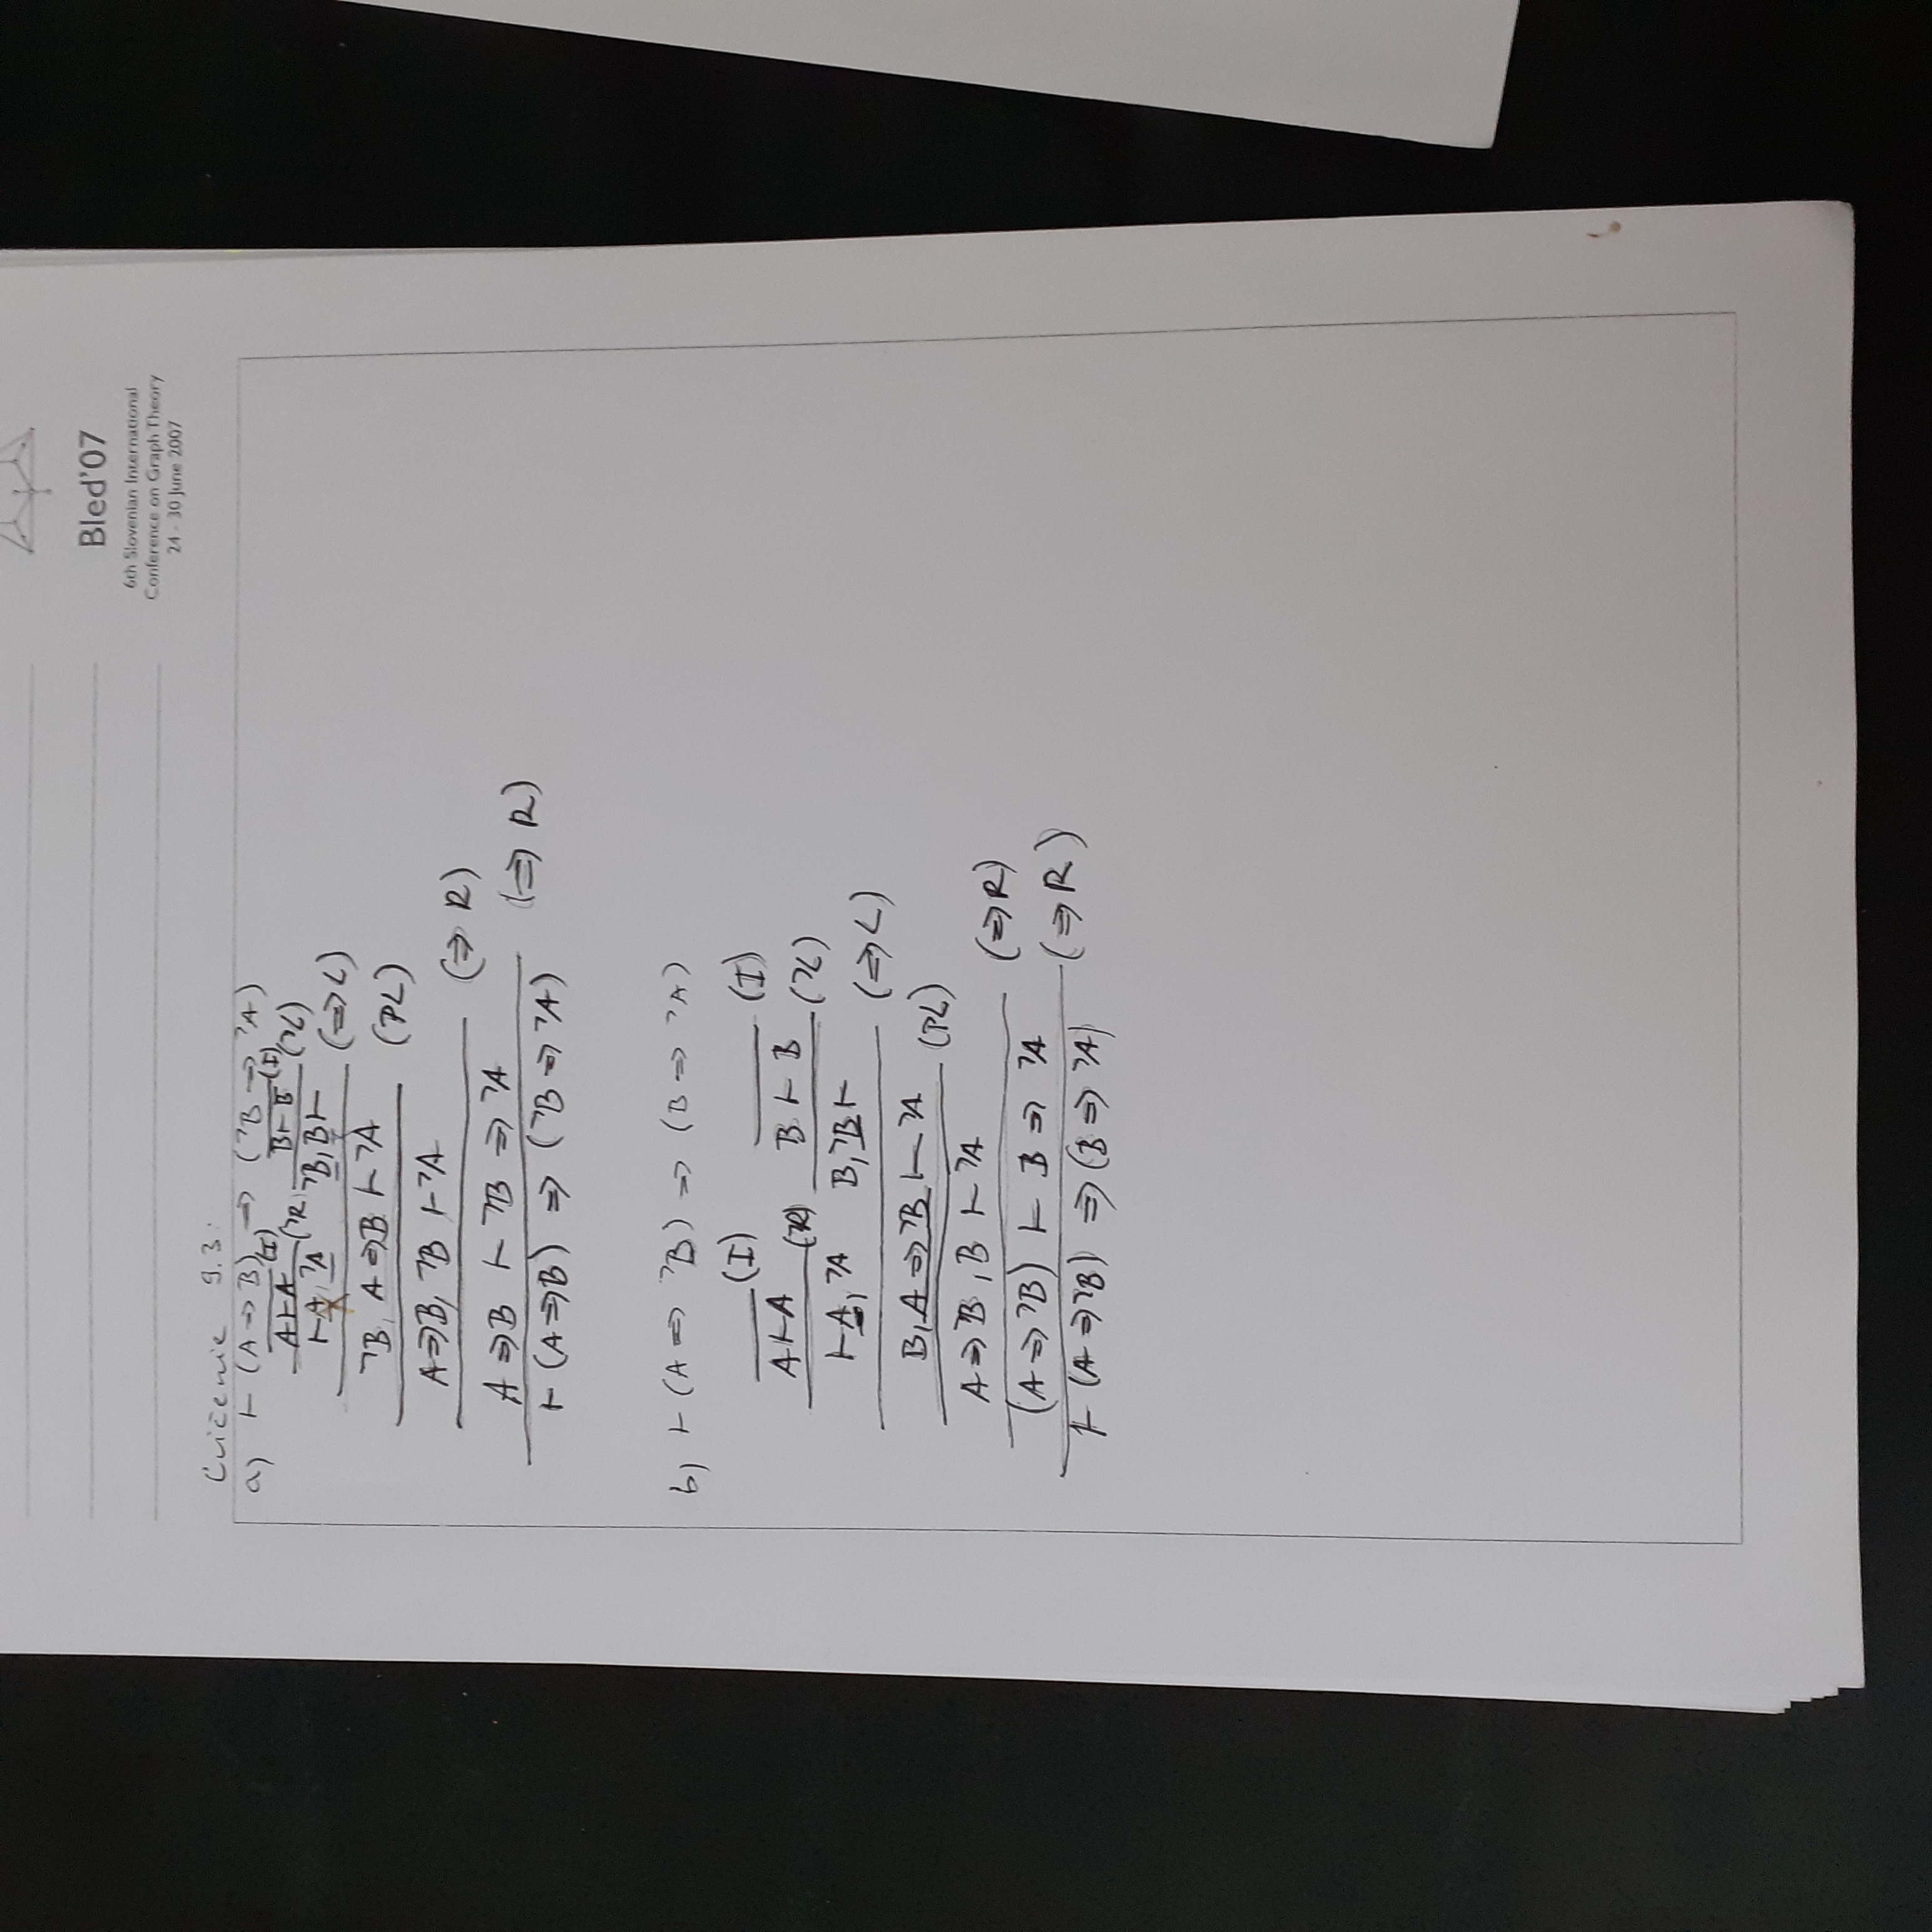 Bled'07
6th Slovenian International
Conference on Graph Theory
24 - 30 June 2007
Cvičenie 9.3:
a) ⊢ (A ⇒ B) ⇒ (¬B ⇒ ¬A)
A ⊢ A (I) B ⊢ B (I)
⊢ A, ¬A (¬R) ¬B, B ⊢ (¬L)
¬B, A ⇒ B ⊢ ¬A (⇒ L)
A ⇒ B, ¬B ⊢ ¬A (PL)
A ⇒ B ⊢ ¬B ⇒ ¬A (⇒ R)
⊢ (A ⇒ B) ⇒ (¬B ⇒ ¬A) (⇒ R)
b) ⊢ (A ⇒ ¬B) ⇒ (B ⇒ ¬A)
(I) (I)
A ⊢ A (¬R) B ⊢ B (¬L)
⊢ A, ¬A B, ¬B ⊢ (⇒ L)
B, A ⇒ ¬B ⊢ ¬A (PL)
A ⇒ ¬B, B ⊢ ¬A (⇒ R)
(A ⇒ ¬B) ⊢ B ⇒ ¬A (⇒ R)
⊢ (A ⇒ ¬B) ⇒ (B ⇒ ¬A)